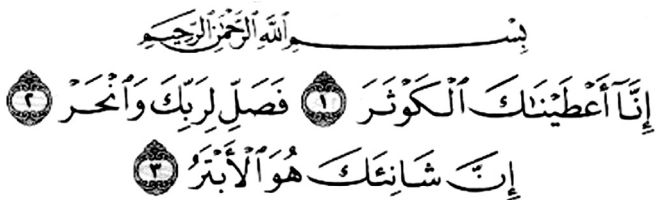 بِسْمِ ٱللَّهِ ٱلرَّحْمَٰنِ ٱلرَّحِيمِ
إِنَّآ أَعْطَيْنَٰكَ ٱلْكَوْثَرَ ١ فَصَلِّ لِرَبِّكَ وَٱنْحَرْ ٢
إِنَّ شَانِئَكَ هُوَ ٱلْأَبْتَرُ ٣